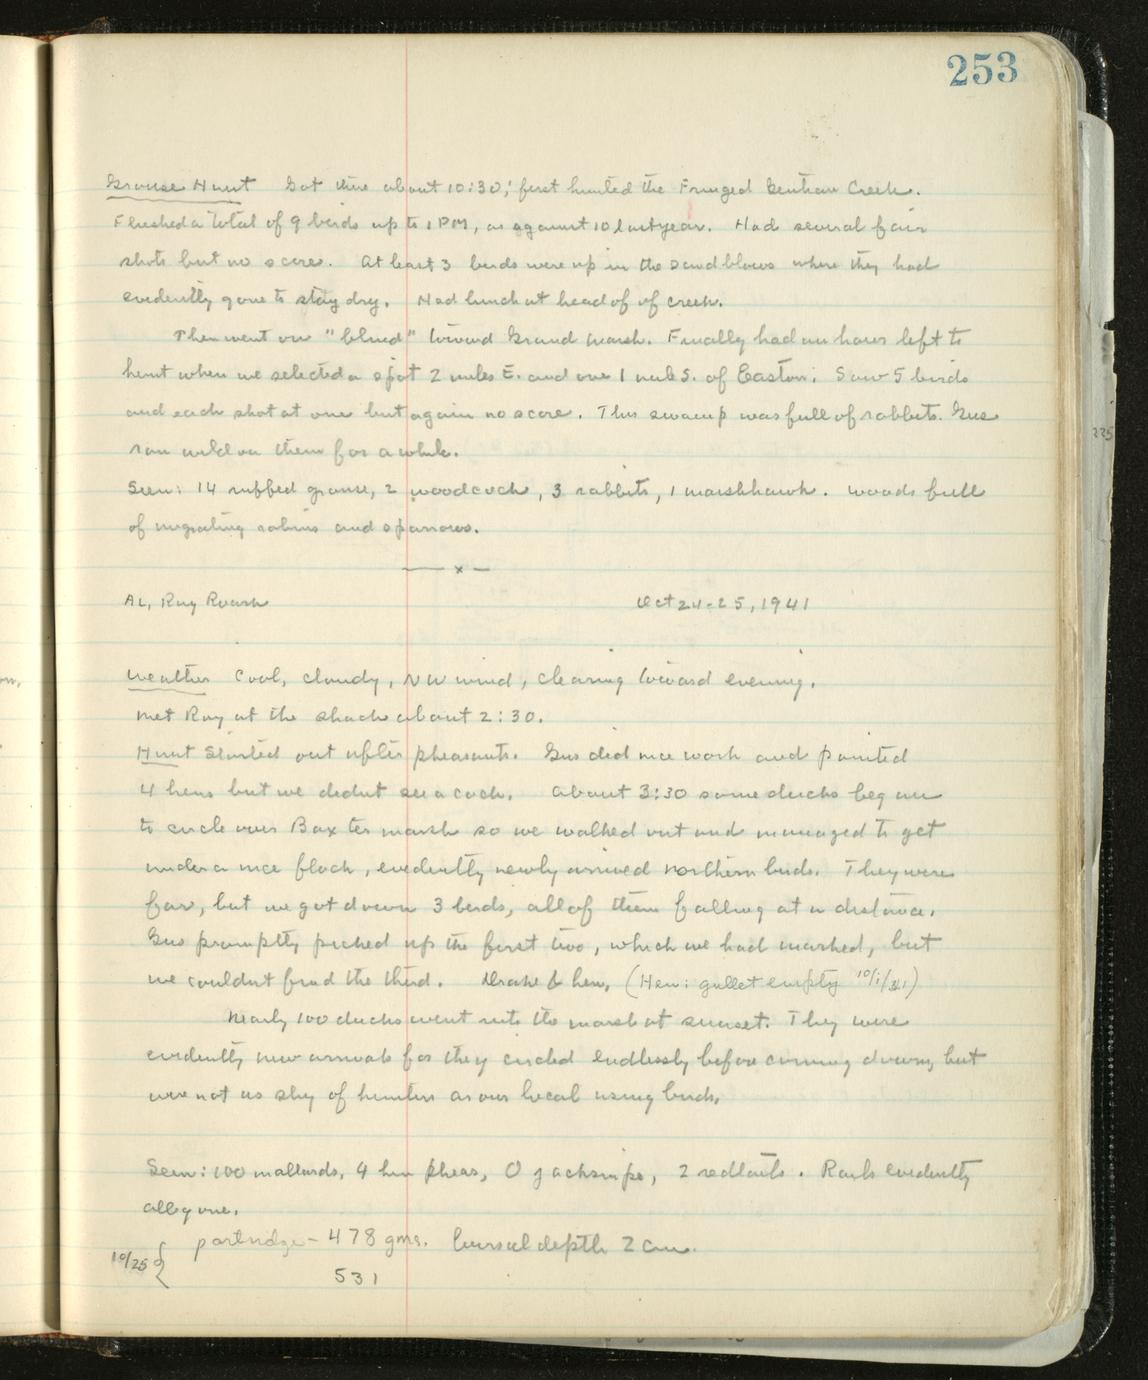 253
Grouse Hunt Got there about 10:30; first hunted the Fringed Gentian Creek.
Flushed a total of 9 birds up to 1 PM, as against 10 last year. Had several fair
shots but no score. At least 3 birds were up in the sandblows where they had
evidently gone to stay dry. Had lunch at head of of creek.
Then went on "blind" toward Grand Marsh. Finally had an hours left to
hunt when we selected a spot 2 miles E. and one 1 mile S. of Easton. Saw 5 birds
and each shot at one but again no score. This swamp was full of rabbits. Gus
ran wild on them for a while.
Seen: 14 ruffed grouse, 2 woodcock, 3 rabbits, 1 marshhawk. Woods full
of migrating robins and sparrows.
— x —
AL, Ray Roark
Oct 24-25, 1941
Weather Cool, cloudy, NW wind, clearing toward evening.
Met Ray at the shack about 2:30.
Hunt Started out after pheasants. Gus did nice work and pointed
4 hens but we didnt see a cock. About 3:30 some ducks began
to circle over Baxters marsh so we walked out and managed to get
under a nice flock, evidently newly arrived northern birds. They were
far, but we got down 3 birds, all of them falling at a distance.
Gus promptly picked up the first two, which we had marked, but
we couldnt find the third. Drake & hen, (Hen: gullet empty
Nearly 100 ducks went into the marsh at sunset. They were
evidently new arrivals for they circled endlessly before coming down, but
were not as shy of hunters as our local using birds.
Seen: 100 mallards, 4 hen pheas, 0 jacksnipe, 2 redtails. Rails evidently
all gone.
10/25 { partridge – 478 gms. bursal depth 2 cm.
531
225